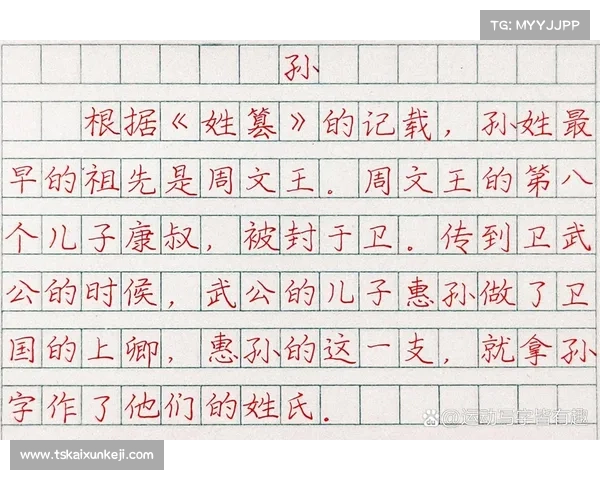 TG: MYYJJPP
孙
根据《姓篡》的记载，孙姓最
早的祖先是周文王．周文王的第八
个儿子康叔，被封于卫。传到卫武
公的时候，武公的儿子惠孙做了卫
国的上卿，惠孙的这一支，就拿孙
字作了他们的姓氏．
@运动与车皆有趣
www.tskaixunkeji.com